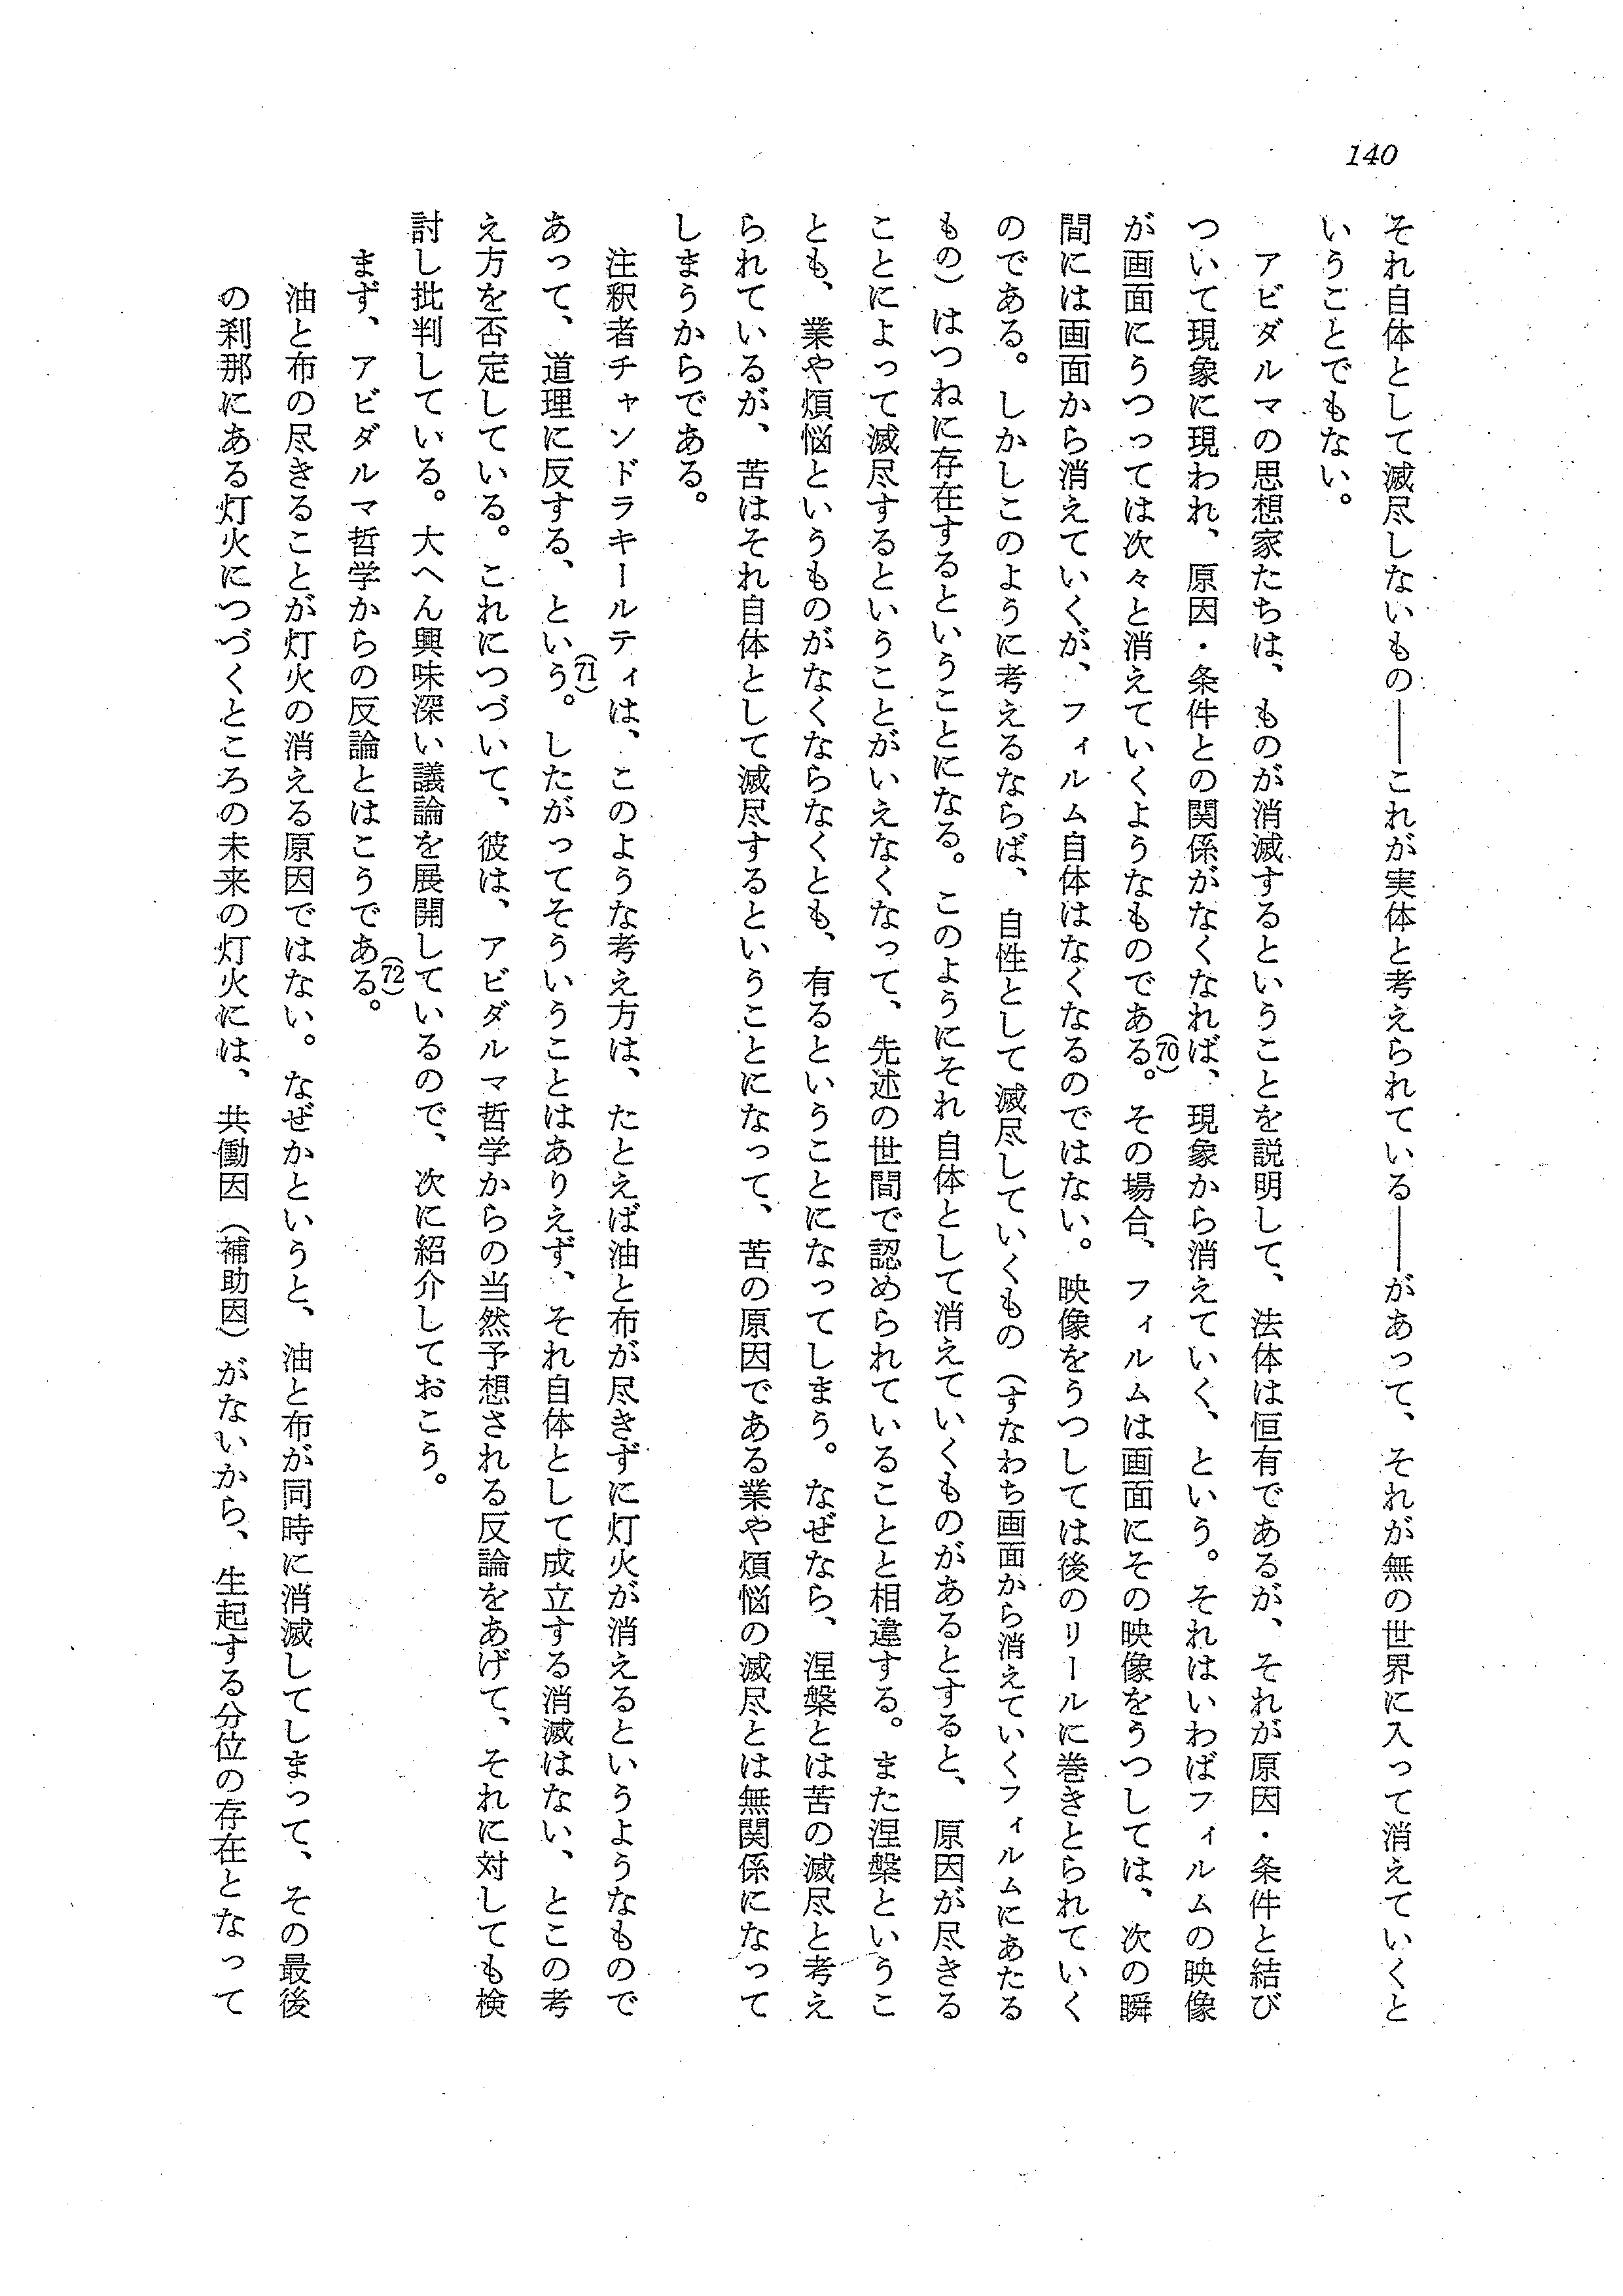 140
それ自体として滅尽しないもの――これが実体と考えられている――があって、それが無の世界に入って消えていくと
いうことでもない。
アビダルマの思想家たちは、ものが消滅するということを説明して、法体は恒有であるが、それが原因・条件と結び
ついて現象に現われ、原因・条件との関係がなくなれば、現象から消えていく、という。それはいわばフィルムの映像
が画面にうつっては次々と消えていくようなものである(70)。その場合、フィルムは画面にその映像をうつしては、次の瞬
間には画面から消えていくが、フィルム自体はなくなるのではない。映像をうつしては後のリールに巻きとられていく
のである。しかしこのように考えるならば、自性として滅尽していくもの（すなわち画面から消えていくフィルムにあたる
もの）はつねに存在するということになる。このようにそれ自体として消えていくものがあるとすると、原因が尽きる
ことによって滅尽するということがいえなくなって、先述の世間で認められていることと相違する。また涅槃というこ
とも、業や煩悩というものがなくならなくとも、有るということになってしまう。なぜなら、涅槃とは苦の滅尽と考え
られているが、苦はそれ自体として滅尽するということになって、苦の原因である業や煩悩の滅尽とは無関係になって
しまうからである。
注釈者チャンドラキールティは、このような考え方は、たとえば油と布が尽きずに灯火が消えるというようなもので
あって、道理に反する、という(71)。したがってそういうことはありえず、それ自体として成立する消滅はない、とこの考
え方を否定している。これにつづいて、彼は、アビダルマ哲学からの当然予想される反論をあげて、それに対しても検
討し批判している。大へん興味深い議論を展開しているので、次に紹介しておこう。
まず、アビダルマ哲学からの反論とはこうである(72)。
油と布の尽きることが灯火の消える原因ではない。なぜかというと、油と布が同時に消滅してしまって、その最後
の刹那にある灯火につづくところの未来の灯火には、共働因（補助因）がないから、生起する分位の存在となって